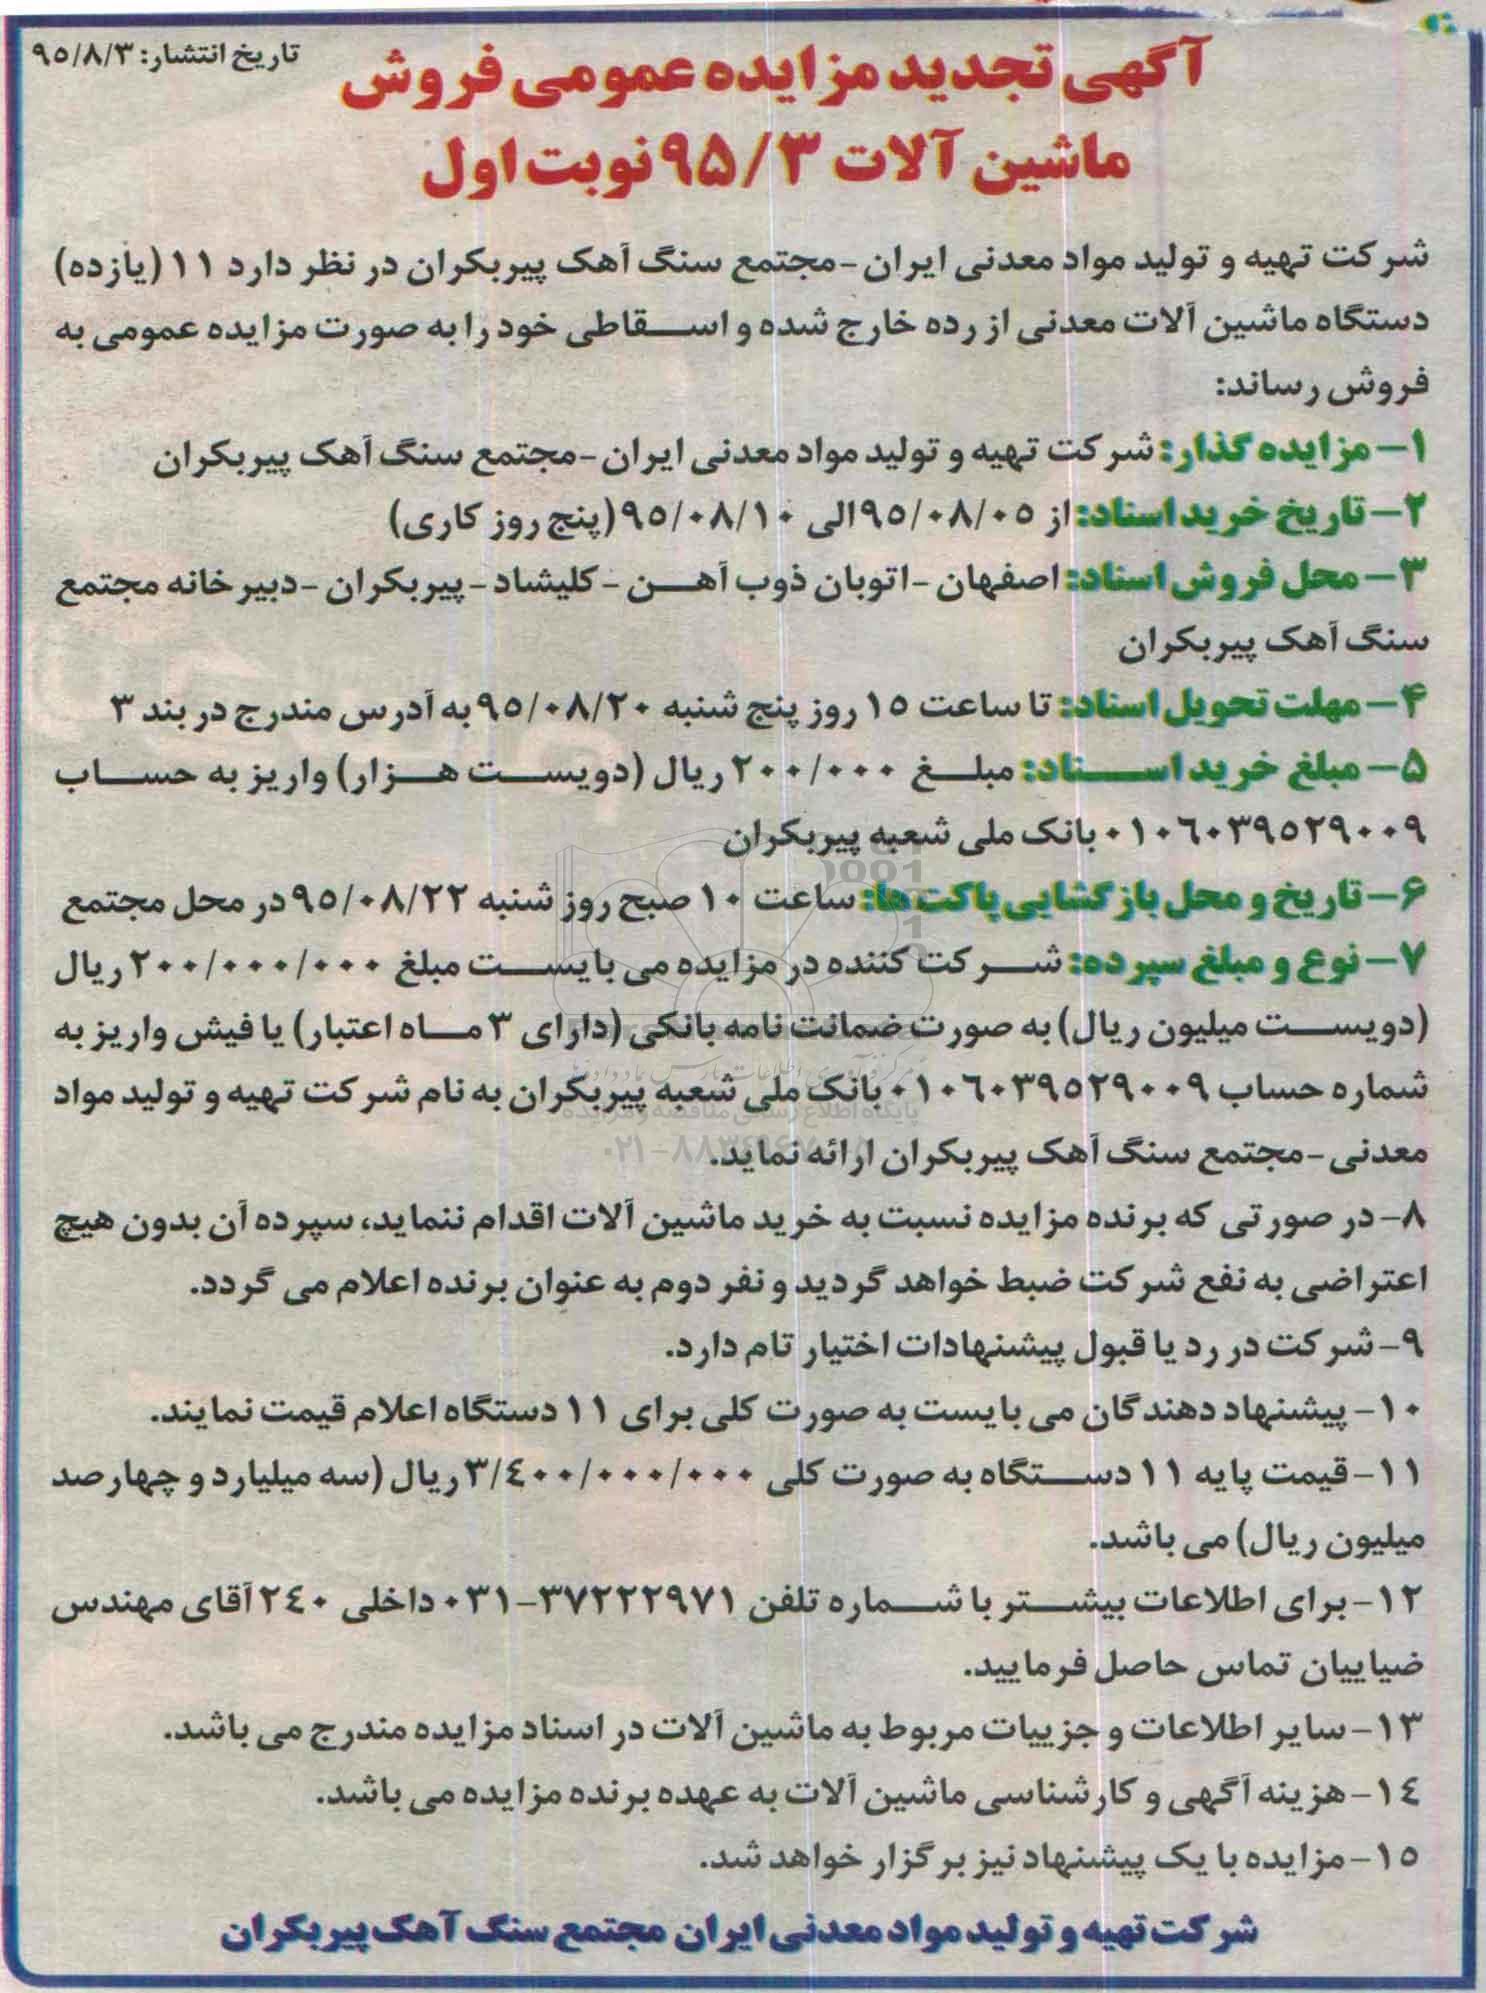 تاریخ انتشار: ۹۵/۸/۳
آگهی تجدید مزایده عمومی فروش
ماشین آلات ۹۵/۳ نوبت اول
شرکت تهیه و تولید مواد معدنی ایران - مجتمع سنگ آهک پیربکران در نظر دارد ۱۱ (یازده)
دستگاه ماشین آلات معدنی از رده خارج شده و اسقاطی خود را به صورت مزایده عمومی به
فروش رساند:
۱- مزایده گذار: شرکت تهیه و تولید مواد معدنی ایران - مجتمع سنگ آهک پیربکران
۲- تاریخ خرید اسناد: از ۹۵/۰۸/۰۵ الی ۹۵/۰۸/۱۰ (پنج روز کاری)
۳- محل فروش اسناد: اصفهان - اتوبان ذوب آهن - کلیشاد - پیربکران - دبیرخانه مجتمع
سنگ آهک پیربکران
۴- مهلت تحویل اسناد: تا ساعت ۱۵ روز پنج شنبه ۹۵/۰۸/۲۰ به آدرس مندرج در بند ۳
۵- مبلغ خرید اسناد: مبلغ ۲۰۰/۰۰۰ ریال (دویست هزار) واریز به حساب
۰۱۰۶۰۳۹۵۲۹۰۰۹ بانک ملی شعبه پیربکران
۶- تاریخ و محل بازگشایی پاکت ها: ساعت ۱۰ صبح روز شنبه ۹۵/۰۸/۲۲ در محل مجتمع
۷- نوع و مبلغ سپرده: شرکت کننده در مزایده می بایست مبلغ ۲۰۰/۰۰۰/۰۰۰ ریال
(دویست میلیون ریال) به صورت ضمانت نامه بانکی (دارای ۳ ماه اعتبار) یا فیش واریز به
شماره حساب ۰۱۰۶۰۳۹۵۲۹۰۰۹ بانک ملی شعبه پیربکران به نام شرکت تهیه و تولید مواد
معدنی - مجتمع سنگ آهک پیربکران ارائه نماید.
۸- در صورتی که برنده مزایده نسبت به خرید ماشین آلات اقدام ننماید، سپرده آن بدون هیچ
اعتراضی به نفع شرکت ضبط خواهد گردید و نفر دوم به عنوان برنده اعلام می گردد.
۹- شرکت در رد یا قبول پیشنهادات اختیار تام دارد.
۱۰- پیشنهاد دهندگان می بایست به صورت کلی برای ۱۱ دستگاه اعلام قیمت نمایند.
۱۱- قیمت پایه ۱۱ دستگاه به صورت کلی ۳/۴۰۰/۰۰۰/۰۰۰ ریال (سه میلیارد و چهارصد
میلیون ریال) می باشد.
۱۲- برای اطلاعات بیشتر با شماره تلفن ۳۷۲۲۲۹۷۱-۰۳۱ داخلی ۲۴۰ آقای مهندس
ضیاییان تماس حاصل فرمایید.
۱۳- سایر اطلاعات و جزییات مربوط به ماشین آلات در اسناد مزایده مندرج می باشد.
۱۴- هزینه آگهی و کارشناسی ماشین آلات به عهده برنده مزایده می باشد.
۱۵- مزایده با یک پیشنهاد نیز برگزار خواهد شد.
شرکت تهیه و تولید مواد معدنی ایران مجتمع سنگ آهک پیربکران